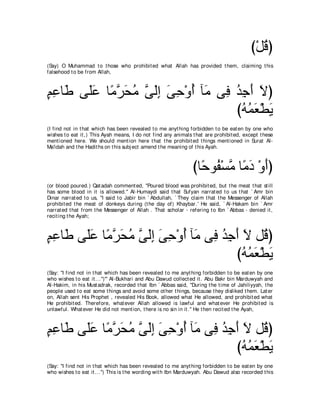 ﴿قُلْ﴾
(Say) O Muhammad to those who prohibited what Allah has provided them, claiming this
falsehood to be from Allah,
﴿لاَ أَجِدُ فِى مَآ أُوْحِىَ إِلَىَّ مُحَرَّمًا عَلَى طَاعِمٍ
يَطْعَمُهُ﴾
(I find not in that which has been revealed to me anything forbidden to be eaten by one who
wishes to eat it,) This Ayah means, I do not find any animals that are prohibited, except these
mentioned here. We should mention here that the prohibited things mentioned in Surat Al-
Ma'idah and the Hadiths on this subject amend the meaning of this Ayah.
﴿أَوْ دَمًا مَّسْفُوحًا﴾
(or blood poured) Qatadah commented, "Poured blood was prohibited, but the meat that still
has some blood in it is allowed." Al-Humaydi said that Sufyan narrated to us that `Amr bin
Dinar narrated to us, "I said to Jabir bin `Abdullah, `They claim that the Messenger of Allah
prohibited the meat of donkeys during (the day of) Khaybar.' He said, `Al-Hakam bin `Amr
narrated that from the Messenger of Allah . That scholar - refering to Ibn `Abbas - denied it,
reciting the Ayah;
﴿قُل لاَ أَجِدُ فِى مَآ أُوْحِىَ إِلَىَّ مُحَرَّمًا عَلَى طَاعِمٍ
يَطْعَمُهُ﴾
(Say: "I find not in that which has been revealed to me anything forbidden to be eaten by one
who wishes to eat it...")'" Al-Bukhari and Abu Dawud collected it. Abu Bakr bin Marduwyah and
Al-Hakim, in his Mustadrak, recorded that Ibn `Abbas said, "During the time of Jahiliyyah, the
people used to eat some things and avoid some other things, because they disliked them. Later
on, Allah sent His Prophet , revealed His Book, allowed what He allowed, and prohibited what
He prohibited. Therefore, whatever Allah allowed is lawful and whatever He prohibited is
unlawful. Whatever He did not mention, there is no sin in it." He then recited the Ayah,
﴿قُل لاَ أَجِدُ فِى مَآ أُوْحِىَ إِلَىَّ مُحَرَّمًا عَلَى طَاعِمٍ
يَطْعَمُهُ﴾
(Say: "I find not in that which has been revealed to me anything forbidden to be eaten by one
who wishes to eat it...") This is the wording with Ibn Marduwyah. Abu Dawud also recorded this